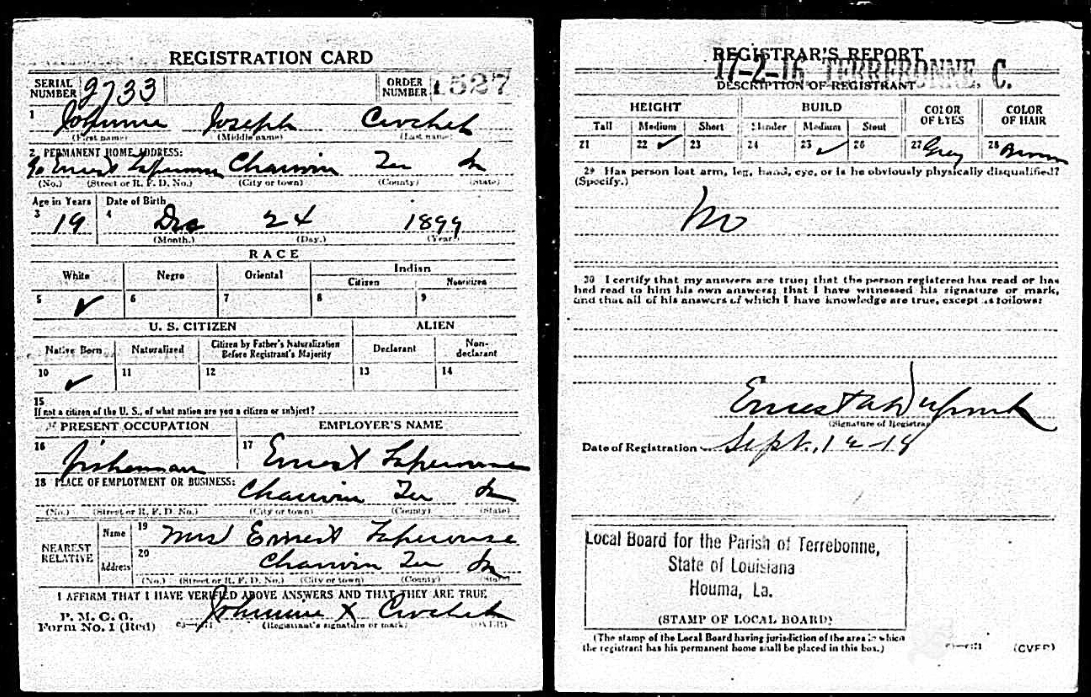 REGISTRATION CARD
SERIAL NUMBER 2733 ORDER NUMBER 1527
1 Johnnie Joseph Crochet
(First name) (Middle name) (Last name)
2 PERMANENT HOME ADDRESS:
% Ernest Laperouse Chauvin Ter La
(No.) (Street or R. F. D. No.) (City or town) (County) (State)
Age in Years Date of Birth
3 19 4 Dec 24 1899
(Month.) (Day.) (Year)
RACE
White Negro Oriental Indian
Citizen Noncitizen
5 ✓ 6 7 8 9
U. S. CITIZEN ALIEN
Native Born Naturalized Citizen by Father's Naturalization Before Registrant's Majority Declarant Non-declarant
10 ✓ 11 12 13 14
15
If not a citizen of the U. S., of what nation are you a citizen or subject?
PRESENT OCCUPATION EMPLOYER'S NAME
16 fisherman 17 Ernest Laperouse
18 PLACE OF EMPLOYMENT OR BUSINESS:
Chauvin Ter La
(No.) (Street or R. F. D. No.) (City or town) (County) (State)
NEAREST RELATIVE
Name 19 Mrs Ernest Laperouse
Address 20 Chauvin Ter La
(No.) (Street or R. F. D. No.) (City or town) (County) (State)
I AFFIRM THAT I HAVE VERIFIED ABOVE ANSWERS AND THAT THEY ARE TRUE
P. M. G. O.
Form No. 1 (Red) Johnnie X Crochet
(Registrant's signature or mark) (OVER)
REGISTRAR'S REPORT
17-2-16 TERREBONNE, C.
DESCRIPTION OF REGISTRANT
HEIGHT BUILD COLOR OF EYES COLOR OF HAIR
Tall Medium Short Slender Medium Stout
21 22 ✓ 23 24 25 ✓ 26 27 Grey 28 Brown
29 Has person lost arm, leg, hand, eye, or is he obviously physically disqualified?
(Specify.)
No
30 I certify that my answers are true; that the person registered has read or has
had read to him his own answers; that I have witnessed his signature or mark,
and that all of his answers of which I have knowledge are true, except as follows:
Ernest A
(Signature of Registrar)
Date of Registration Sept. 12-18
Local Board for the Parish of Terrebonne,
State of Louisiana
Houma, La.
(STAMP OF LOCAL BOARD)
(The stamp of the Local Board having jurisdiction of the area in which
the registrant has his permanent home shall be placed in this box.)
(OVER)